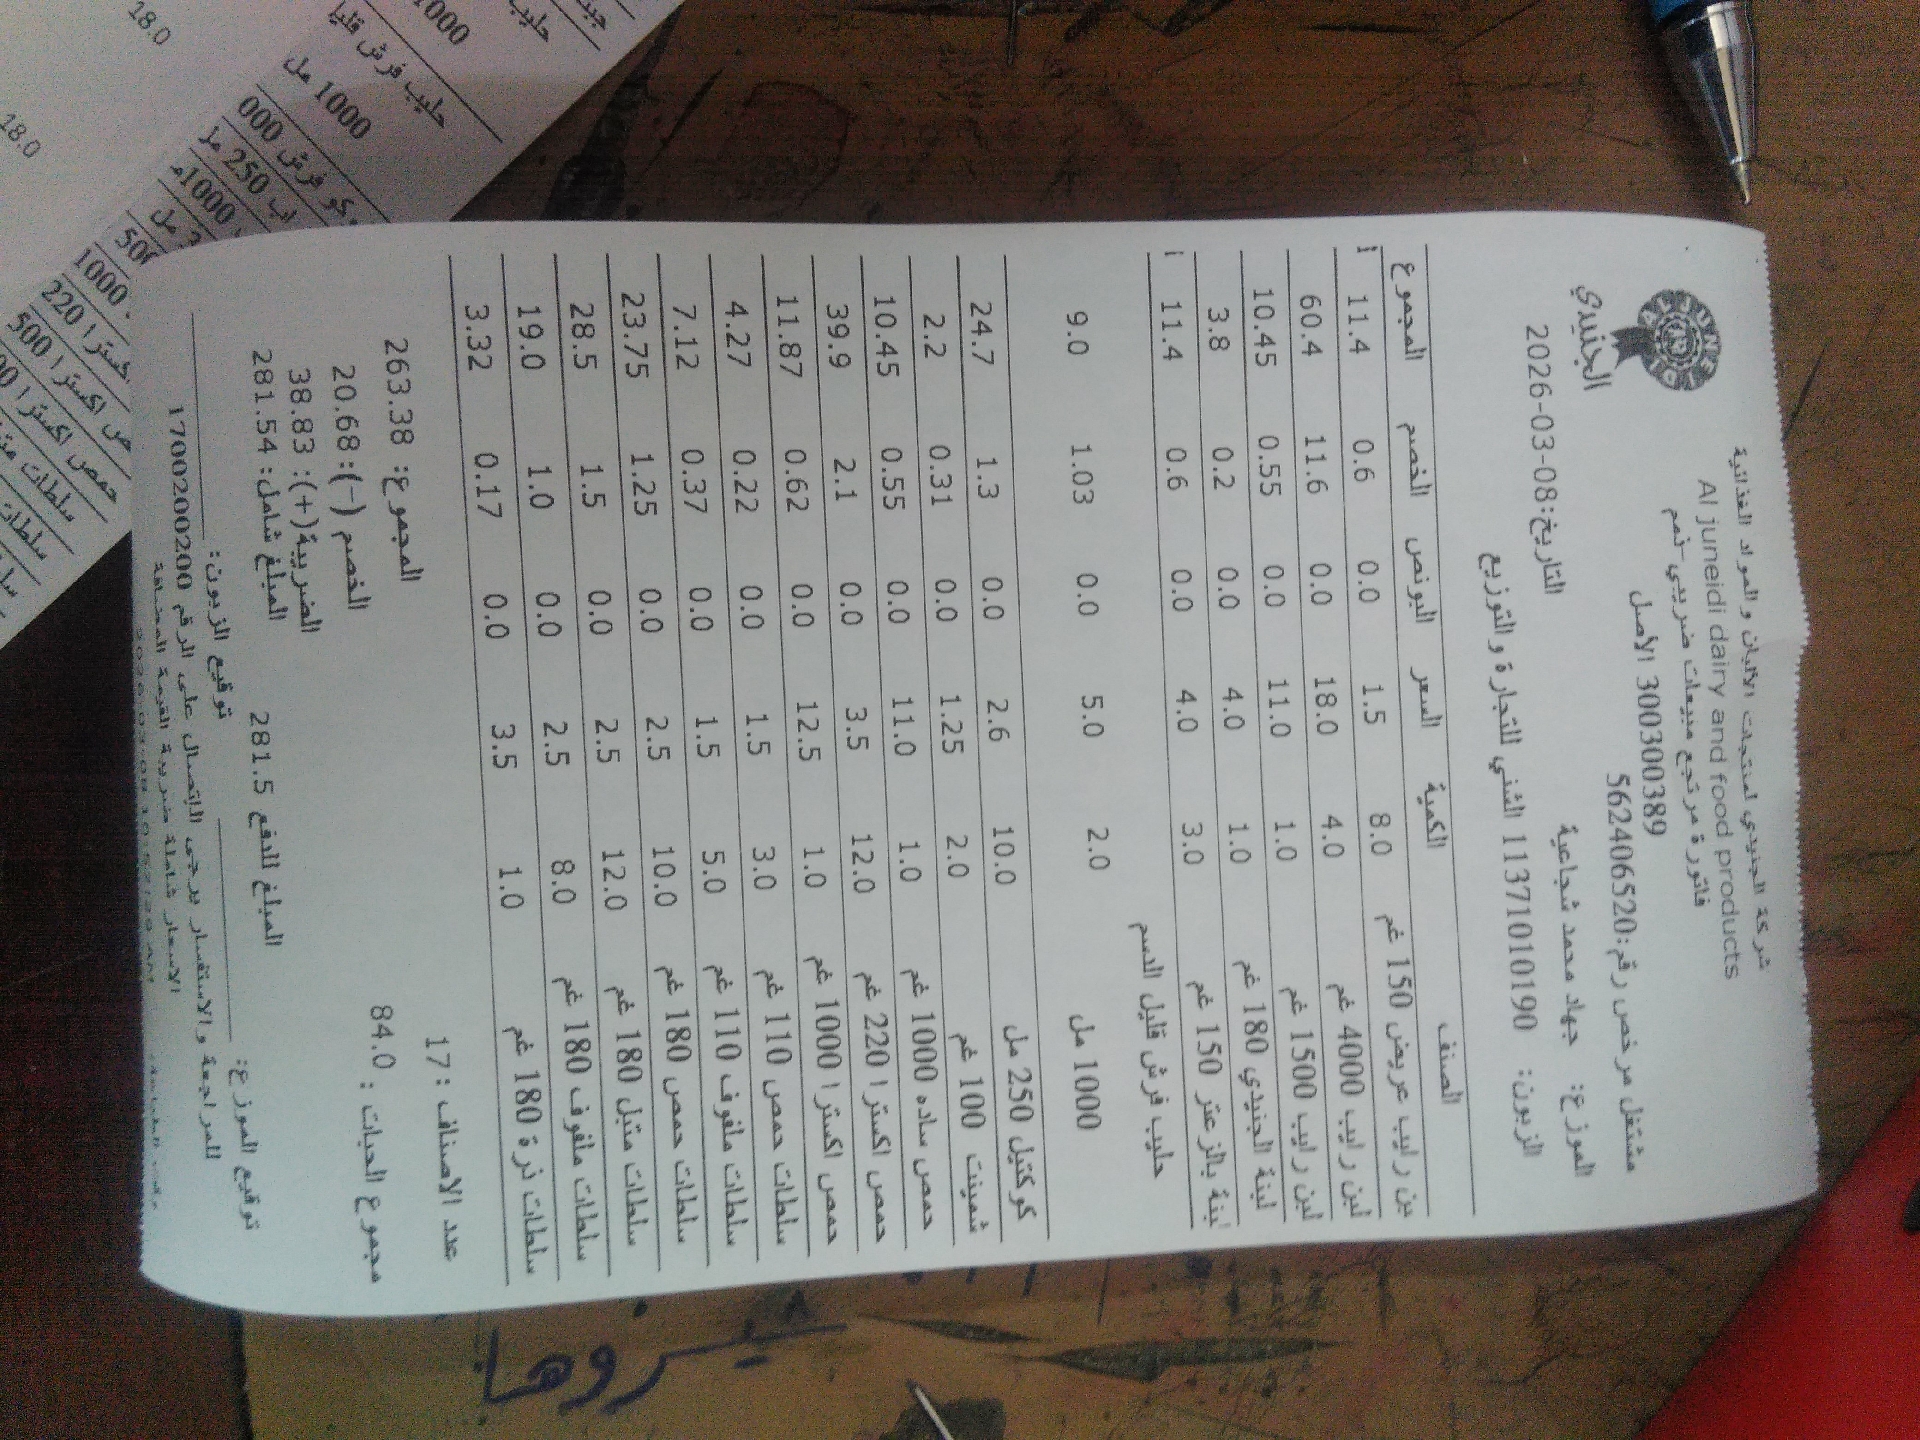 الجنيدي
شركة الجنيدي لمنتجات الألبان والمواد الغذائية
Al juneidi dairy and food products
فاتورة مرتجع مبيعات ضريبي-ذمم
300300389 الأصل
مشتغل مرخص رقم:562406520
التاريخ:08-03-2026
الموزع: جهاد محمد شجاعية
الزبون: 1137101019​0 الغني للتجارة والتوزيع
الصنف الكمية السعر البونص الخصم المجموع
رايب عريض 150 غم 8.0 1.5 0.0 0.6 11.4
لبن رايب 4000 غم 4.0 18.0 0.0 11.6 60.4
لبن رايب 1500 غم 1.0 11.0 0.0 0.55 10.45
لبنة الجنيدي 180 غم 1.0 4.0 0.0 0.2 3.8
لبنة بالزعتر 150 غم 3.0 4.0 0.0 0.6 11.4
حليب فرش قليل الدسم
1000 مل 2.0 5.0 0.0 1.03 9.0
كوكتيل 250 مل 10.0 2.6 0.0 1.3 24.7
شمينت 100 غم 2.0 1.25 0.0 0.31 2.2
حمص ساده 1000 غم 1.0 11.0 0.0 0.55 10.45
حمص اكسترا 220 غم 12.0 3.5 0.0 2.1 39.9
حمص اكسترا 1000 غم 1.0 12.5 0.0 0.62 11.87
سلطات حمص 110 غم 3.0 1.5 0.0 0.22 4.27
سلطات ملفوف 110 غم 5.0 1.5 0.0 0.37 7.12
سلطات حمص 180 غم 10.0 2.5 0.0 1.25 23.75
سلطات متبل 180 غم 12.0 2.5 0.0 1.5 28.5
سلطات ملفوف 180 غم 8.0 2.5 0.0 1.0 19.0
سلطات ذرة 180 غم 1.0 3.5 0.0 0.17 3.32
عدد الاصناف : 17 المجموع: 263.38
مجموع الحبات : 84.0 الخصم (-):20.68
الضريبة(+): 38.83
المبلغ للدفع 281.5 المبلغ شامل: 281.54
توقيع الموزع: توقيع الزبون:
للمراجعة والاستفسار يرجى الاتصال على الرقم 1700200200
الاسعار شاملة ضريبة القيمة المضافة
18.0
18.0
1000
حليب فرش قليل
1000 مل